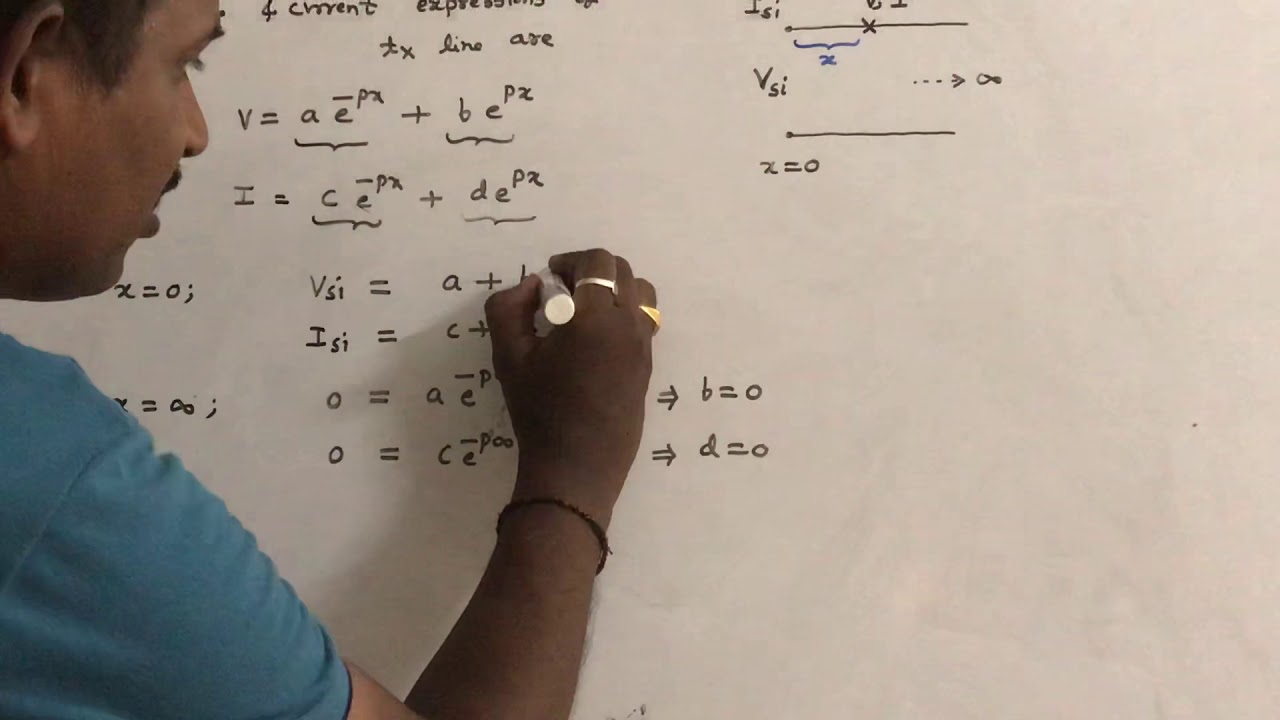 & current expressions of
tx line are
V = a e^-px + b e^px
I = c e^-px + d e^px
x=0; Vsi = a +
Isi = c +
x = ∞; 0 = a e^-p ⇒ b=0
0 = c e^-p∞ ⇒ d=0
Isi V, I
x
Vsi ----> ∞
x=0